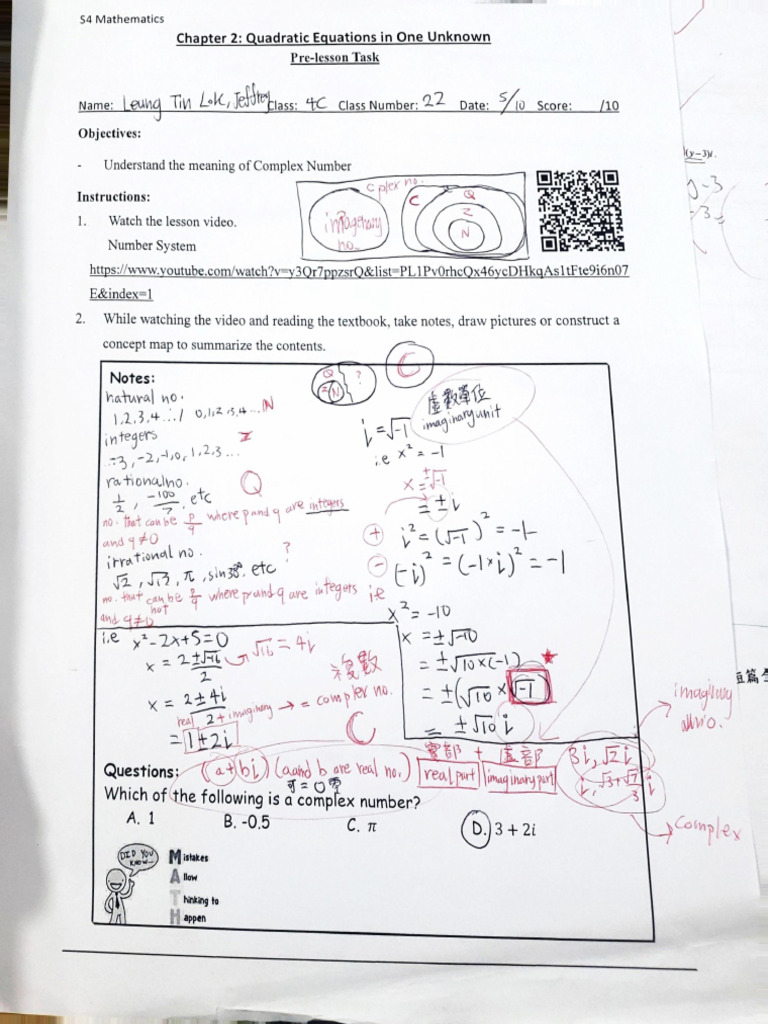 S4 Mathematics
Chapter 2: Quadratic Equations in One Unknown
Pre-lesson Task
Name: Leung Tin Lok, Jeffrey Class: 4C Class Number: 22 Date: 5/10 Score: /10
Objectives:
- Understand the meaning of Complex Number
Instructions:
1. Watch the lesson video.
Number System
C plex no.
imaginary no.
C
Q
Z
N
https://www.youtube.com/watch?v=y3Qr7ppzsrQ&list=PL1Pv0rhcQx46ycDHkqAs1tFte9i6n07
E&index=1
2. While watching the video and reading the textbook, take notes, draw pictures or construct a
concept map to summarize the contents.
Notes:
Q
Z
N
?
C
natural no.
1,2,3,4... / 0,1,2,3,4... N
integers Z
-3,-2,-1,0,1,2,3...
rational no. Q
1/2, -100/7, etc
no. that can be p/q where p and q are integers
and q≠0
irrational no. ?
√2, √13, π, sin38° etc
no. that can not be p/q where p and q are integers
and q≠0
i = √-1
虛數單位
imaginary unit
i.e x² = -1
x = ±√-1
= ±i
+ i² = (√-1)² = -1
- (-i)² = (-1×i)² = -1
i.e
x² = -10
x = ±√-10
= ±√10×(-1)
= ±(√10 × √-1
= ±√10 i
i.e x²-2x+5=0
x = 2±√-16/2
√16 = 4i
x = 2±4i/2
real 2 + imaginary → = complex no.
= 1±2i
複數
C
實部 + 虛部
real part imaginary part
3i, √2 i
i, √3+√7/3 i
imaginary
no.
complex
Questions: (a+bi) (a and b are real no.)
可=0
Which of the following is a complex number?
A. 1 B. -0.5 C. π D. 3 + 2i
DID YOU KNOW...
Mistakes
Allow
Thinking to
Happen
(y−3)i.
短篇